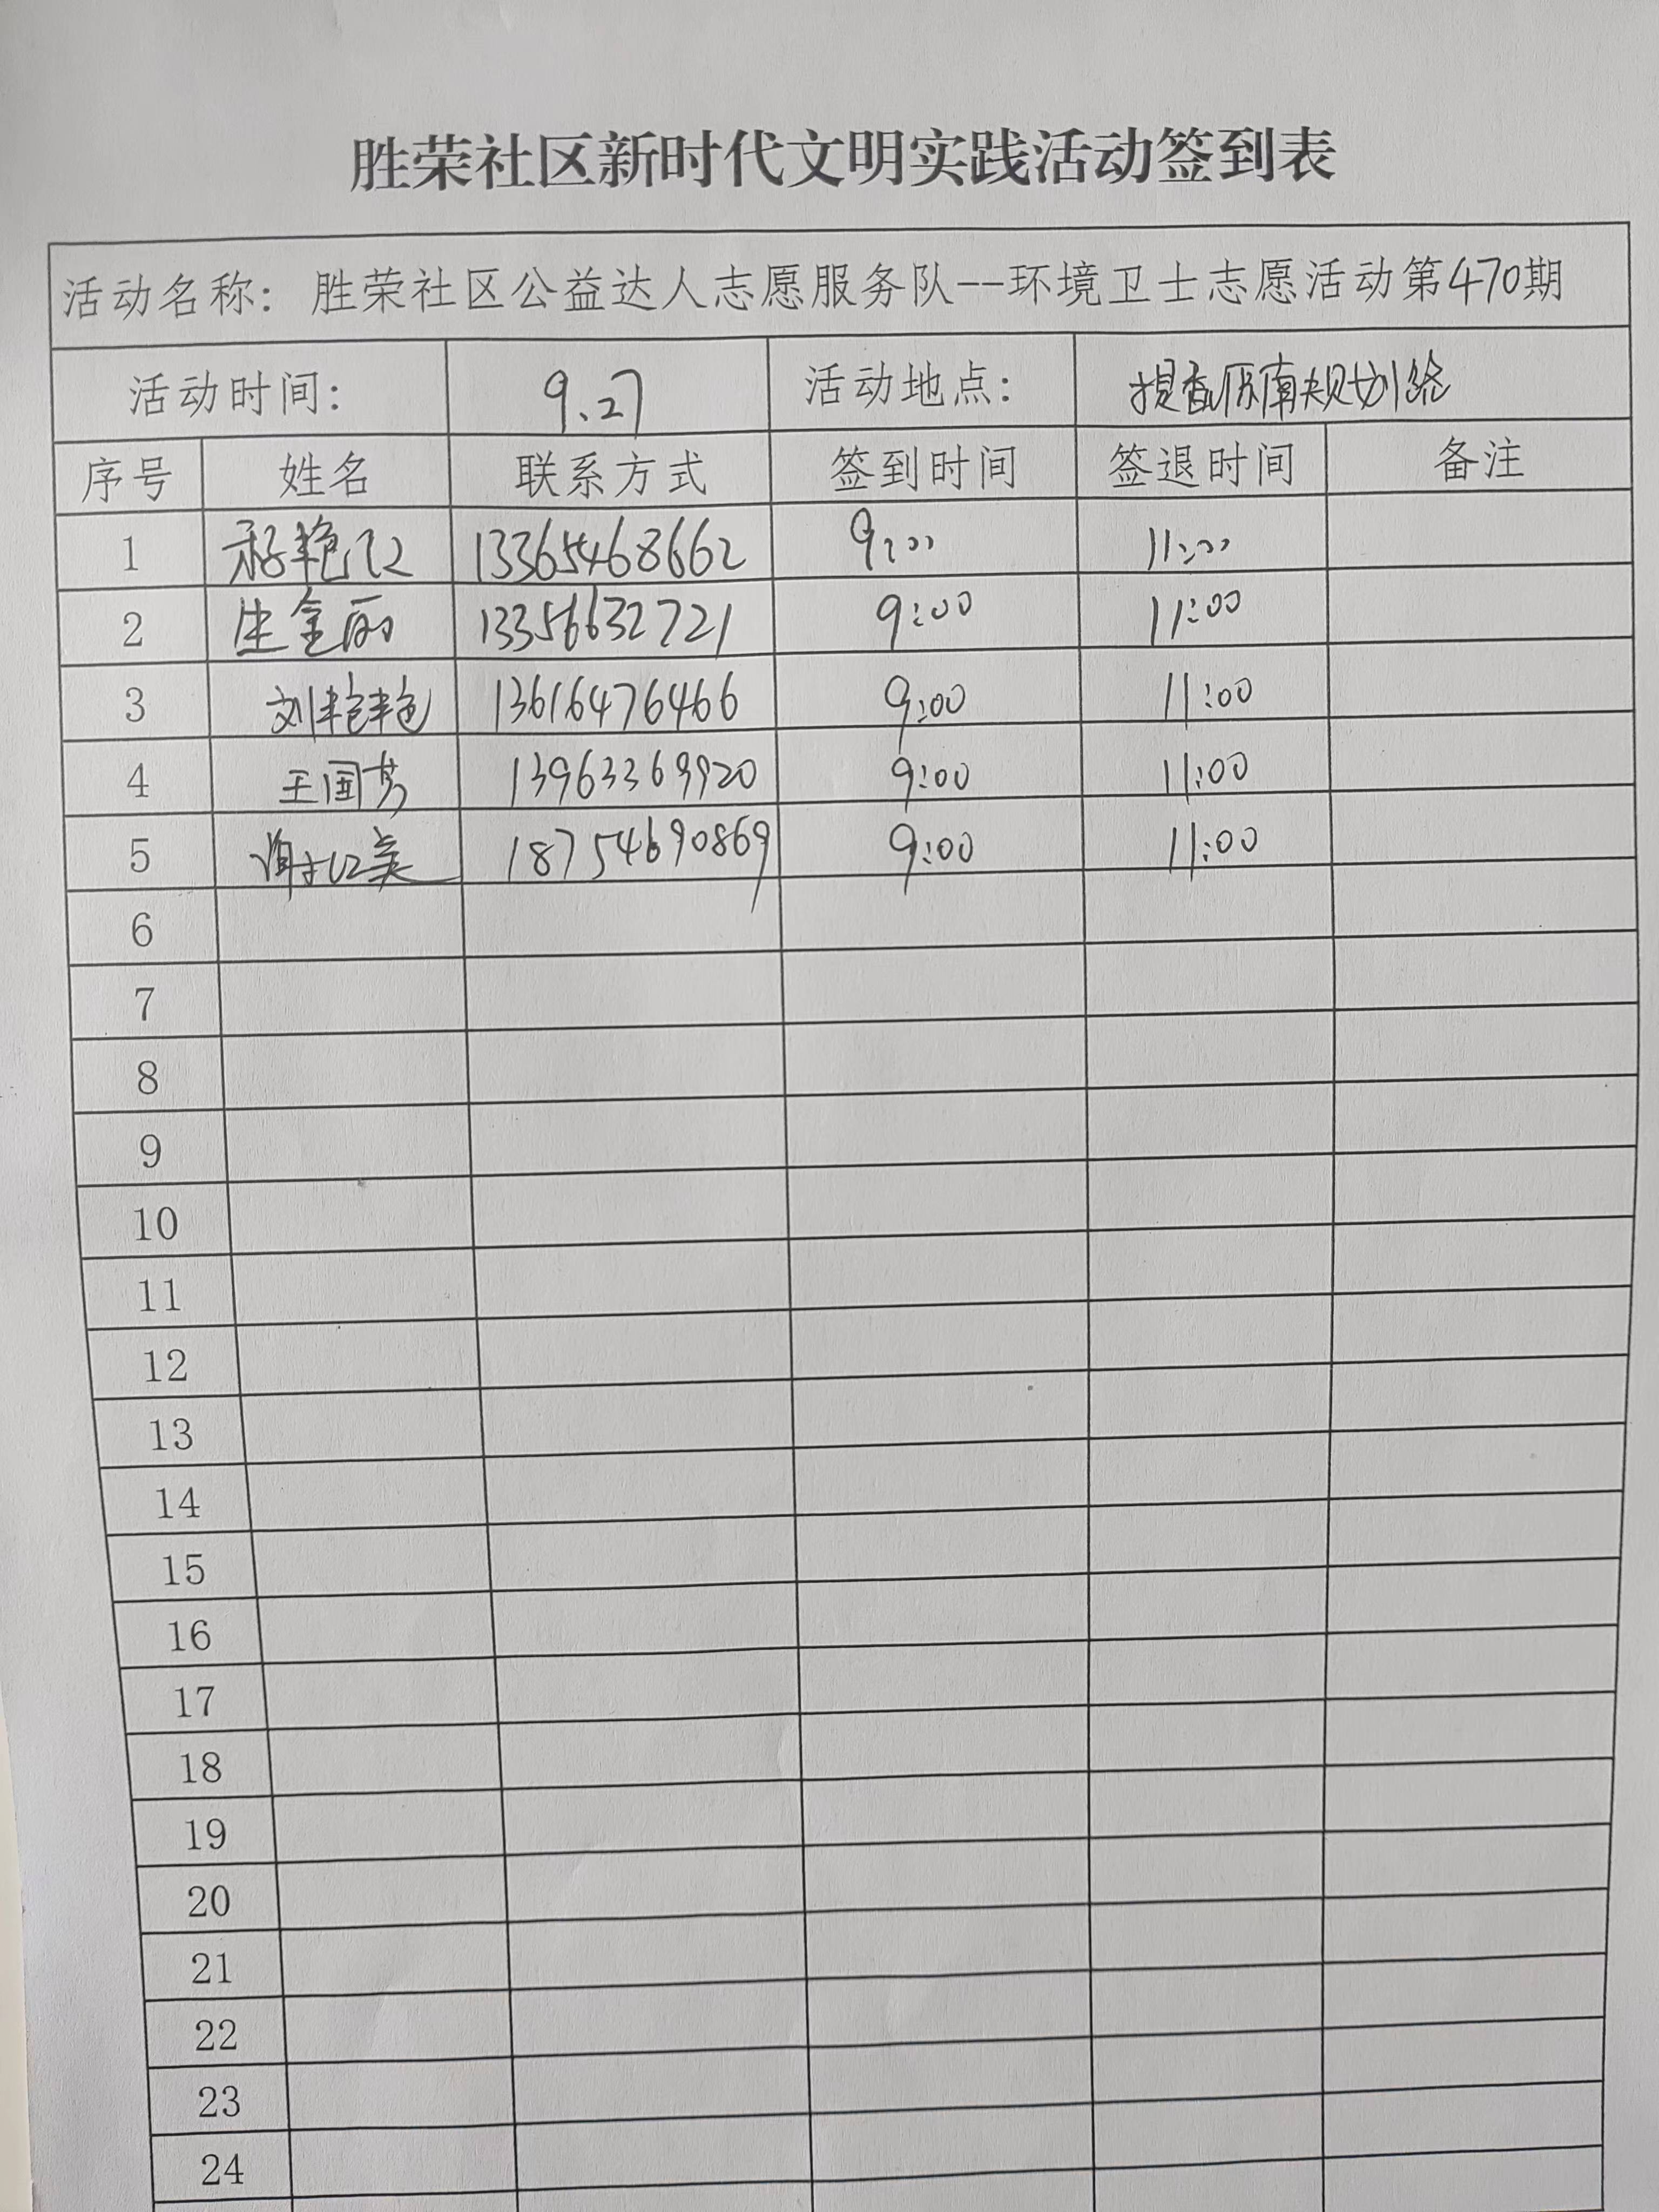 胜荣社区新时代文明实践活动签到表
活动名称: 胜荣社区公益达人志愿服务队--环境卫士志愿活动第470期
活动时间: 9.27 活动地点: 提香原南规划路
序号 姓名 联系方式 签到时间 签退时间 备注
1 艳红 13365468662 9:00 11:00
2 生金丽 13356632721 9:00 11:00
3 刘艳艳 13616476466 9:00 11:00
4 王国芳 13963369920 9:00 11:00
5 谢红美 18754690869 9:00 11:00
6
7
8
9
10
11
12
13
14
15
16
17
18
19
20
21
22
23
24